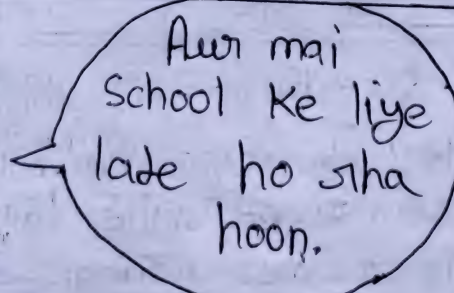 Aur mai
School ke liye
late ho rha
hoon.